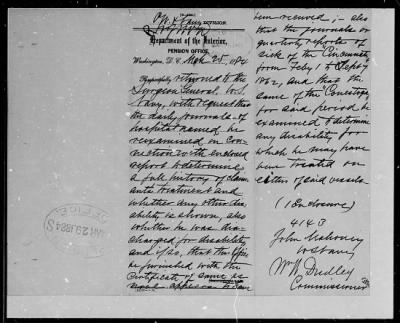 O.W. & Navy DIVISION.
Department of the Interior,
PENSION OFFICE,
Washington, D. C. Mch 28, 1884
Respectfully returned to the
Surgeon General U.S.
Navy, with request that
the daily journals of
hospital named be
reexamined in con-
nection with enclosed
report to determine
a full history of claim-
ants treatment and
whether any other dis-
ability is shown, also
whether he was dis-
charged for disability
and if so, that this Office
be furnished with the
Certificate of same as
none appears to have
been received; also
that the journals or
quarterly reports of
sick of the Cincinnati
from Feby 1 to Sept
1862, and that the
same of the "Conestoga"
for said period be
examined to determine
any disability for
which he may have
been treated on
either of said vessels
(1 Enclosure)
4143
John Mahoney
US Navy
Wm W. Dudley
Commissioner
OFFICE
MAR 29 1884